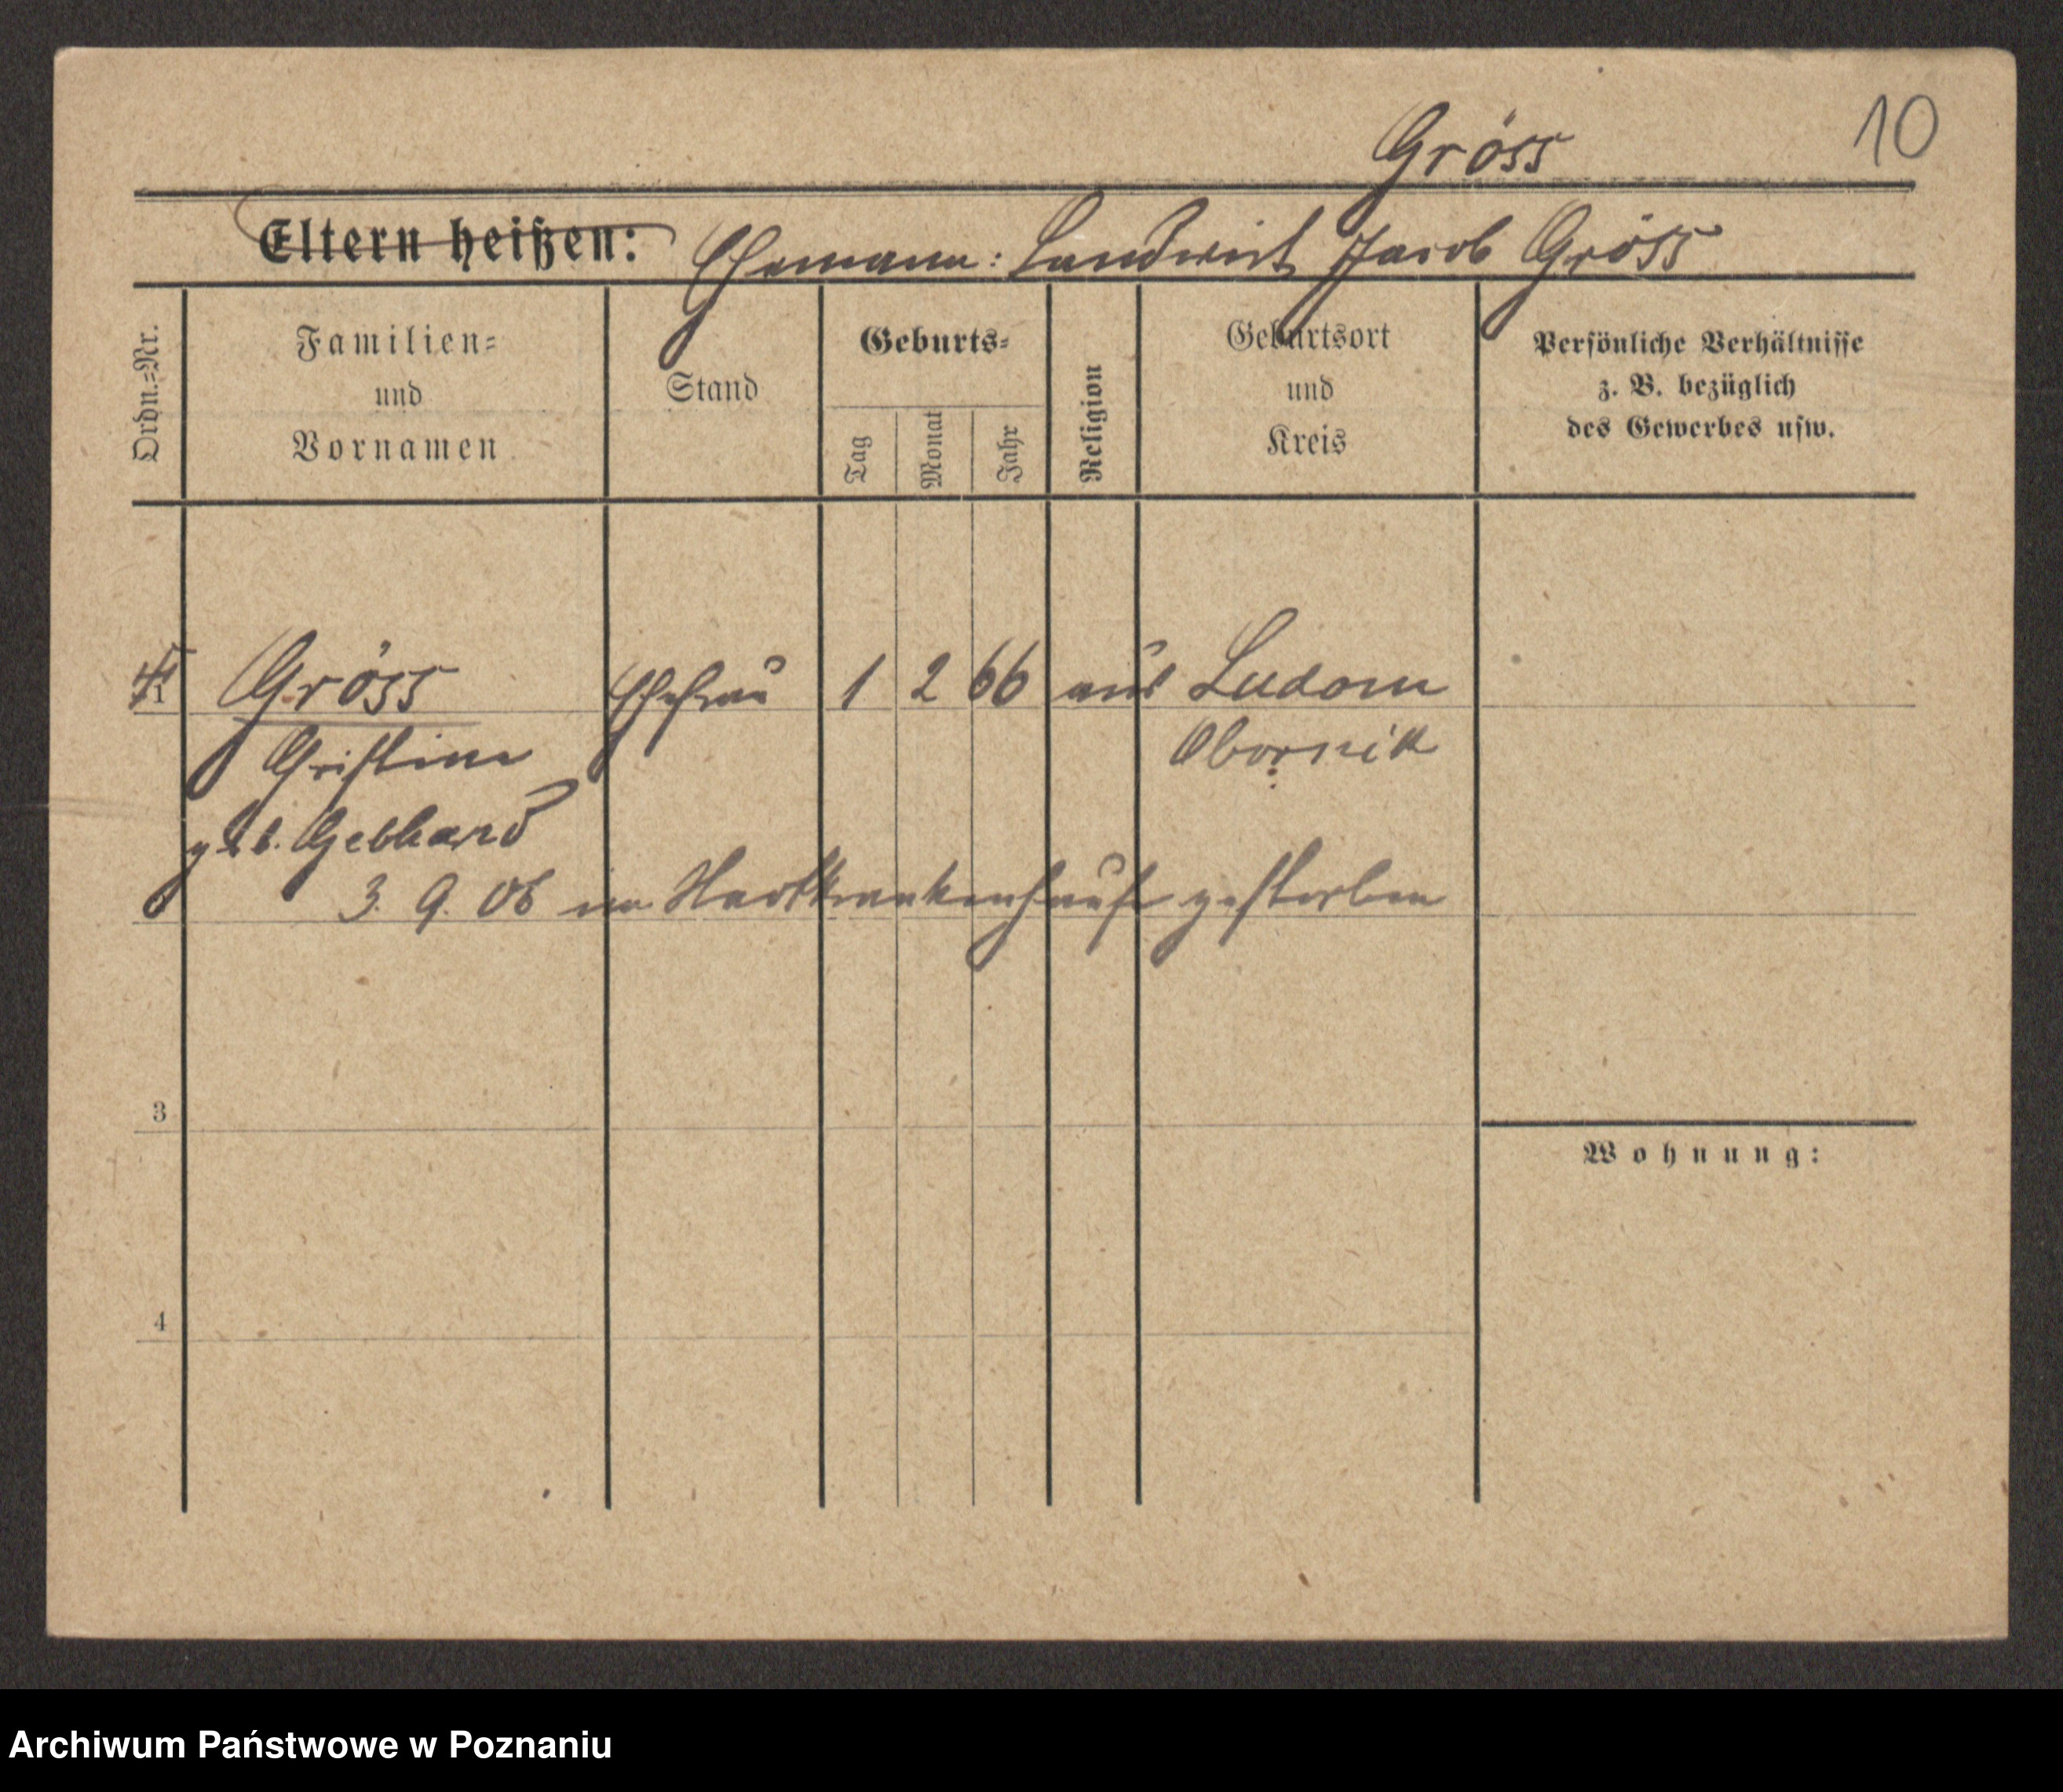 10
Gröss
Eltern heißen: Ehemann: Landwirt Jacob Gröss
Ordn.=Nr.
Familien=
und
Vornamen
Stand
Geburts=
Tag
Monat
Jahr
Religion
Geburtsort
und
Kreis
Persönliche Verhältnisse
z. B. bezüglich
des Gewerbes usw.
1 Gröss Ehefrau 1 2 66 aus Ludom
Obornik
geb. Gebhard
3. 9. 06 im Stadtkrankenhause gestorben
3
Wohnung:
4
Archiwum Państwowe w Poznaniu